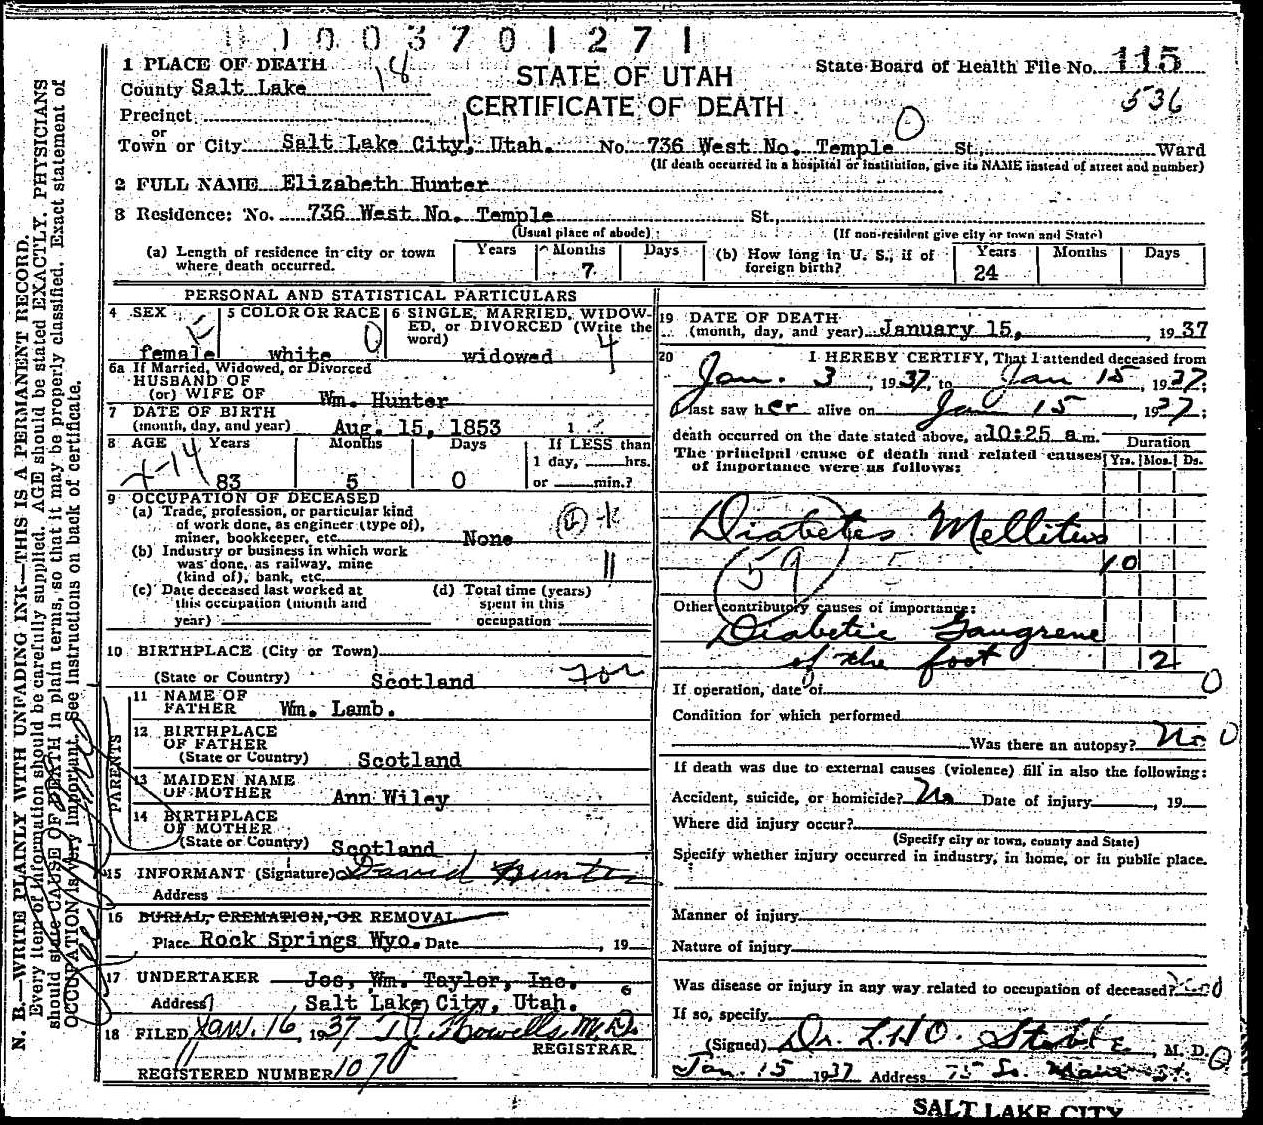 1003701271
1 PLACE OF DEATH 18
County Salt Lake
Precinct
or
Town or City Salt Lake City, Utah. No. 736 West No. Temple St. Ward
STATE OF UTAH
CERTIFICATE OF DEATH
State Board of Health File No. 115
536
0
(If death occurred in a hospital or institution, give its NAME instead of street and number)
2 FULL NAME Elizabeth Hunter
3 Residence: No. 736 West No. Temple St.,
(Usual place of abode) (If non-resident give city or town and State)
(a) Length of residence in city or town where death occurred. Years Months 7 Days
(b) How long in U. S., if of foreign birth? Years 24 Months Days
PERSONAL AND STATISTICAL PARTICULARS
4 SEX female
5 COLOR OR RACE white 0
6 SINGLE, MARRIED, WIDOW-
ED, or DIVORCED (Write the
word) widowed 4
6a If Married, Widowed, or Divorced
HUSBAND OF
(or) WIFE OF Wm. Hunter
7 DATE OF BIRTH
(month, day, and year) Aug. 15, 1853
8 AGE Years Months Days If LESS than
1 day, hrs.
83 5 0 or min.?
9 OCCUPATION OF DECEASED
(a) Trade, profession, or particular kind
of work done, as engineer (type of),
miner, bookkeeper, etc. None
(b) Industry or business in which work
was done, as railway, mine
(kind of), bank, etc.
11
(c) Date deceased last worked at
this occupation (month and
year)
(d) Total time (years)
spent in this
occupation
10 BIRTHPLACE (City or Town)
(State or Country) Scotland
PARENTS
11 NAME OF
FATHER Wm. Lamb.
12 BIRTHPLACE
OF FATHER
(State or Country) Scotland
13 MAIDEN NAME
OF MOTHER Ann Wiley
14 BIRTHPLACE
OF MOTHER
(State or Country) Scotland
15 INFORMANT (Signature) David Hunter
Address
16 BURIAL, CREMATION, OR REMOVAL
Place Rock Springs Wyo. Date , 19
17 UNDERTAKER Jos. Wm. Taylor, Inc.
Address Salt Lake City, Utah. 6
18 FILED Jan. 16, 1937 T.J. Howells, M.D.
REGISTRAR
REGISTERED NUMBER 1070
19 DATE OF DEATH
(month, day, and year) January 15, 1937
20 I HEREBY CERTIFY, That I attended deceased from
Jan. 3, 1937, to Jan 15, 1937;
I last saw her alive on Jan 15, 1937;
death occurred on the date stated above, at 10:25 a.m.
The principal cause of death and related causes
of importance were as follows:
Duration
Yrs. Mos. Ds.
Diabetes Mellitus
59 10
Other contributory causes of importance:
Diabetic Gangrene
of the foot 2
If operation, date of 0
Condition for which performed
Was there an autopsy? No 0
If death was due to external causes (violence) fill in also the following:
Accident, suicide, or homicide? No Date of injury , 19
Where did injury occur?
(Specify city or town, county and State)
Specify whether injury occurred in industry, in home, or in public place.
Manner of injury
Nature of injury
Was disease or injury in any way related to occupation of deceased?
If so, specify
(Signed) Dr. L.H.O. , M. D.
Jan. 15 1937 Address 75 So. Main St.
SALT LAKE CITY
N. B.—WRITE PLAINLY WITH UNFADING INK—THIS IS A PERMANENT RECORD.
Every item of information should be carefully supplied. AGE should be stated EXACTLY. PHYSICIANS
should state CAUSE OF DEATH in plain terms, so that it may be properly classified. Exact statement of
OCCUPATION is very important. See instructions on back of certificate.